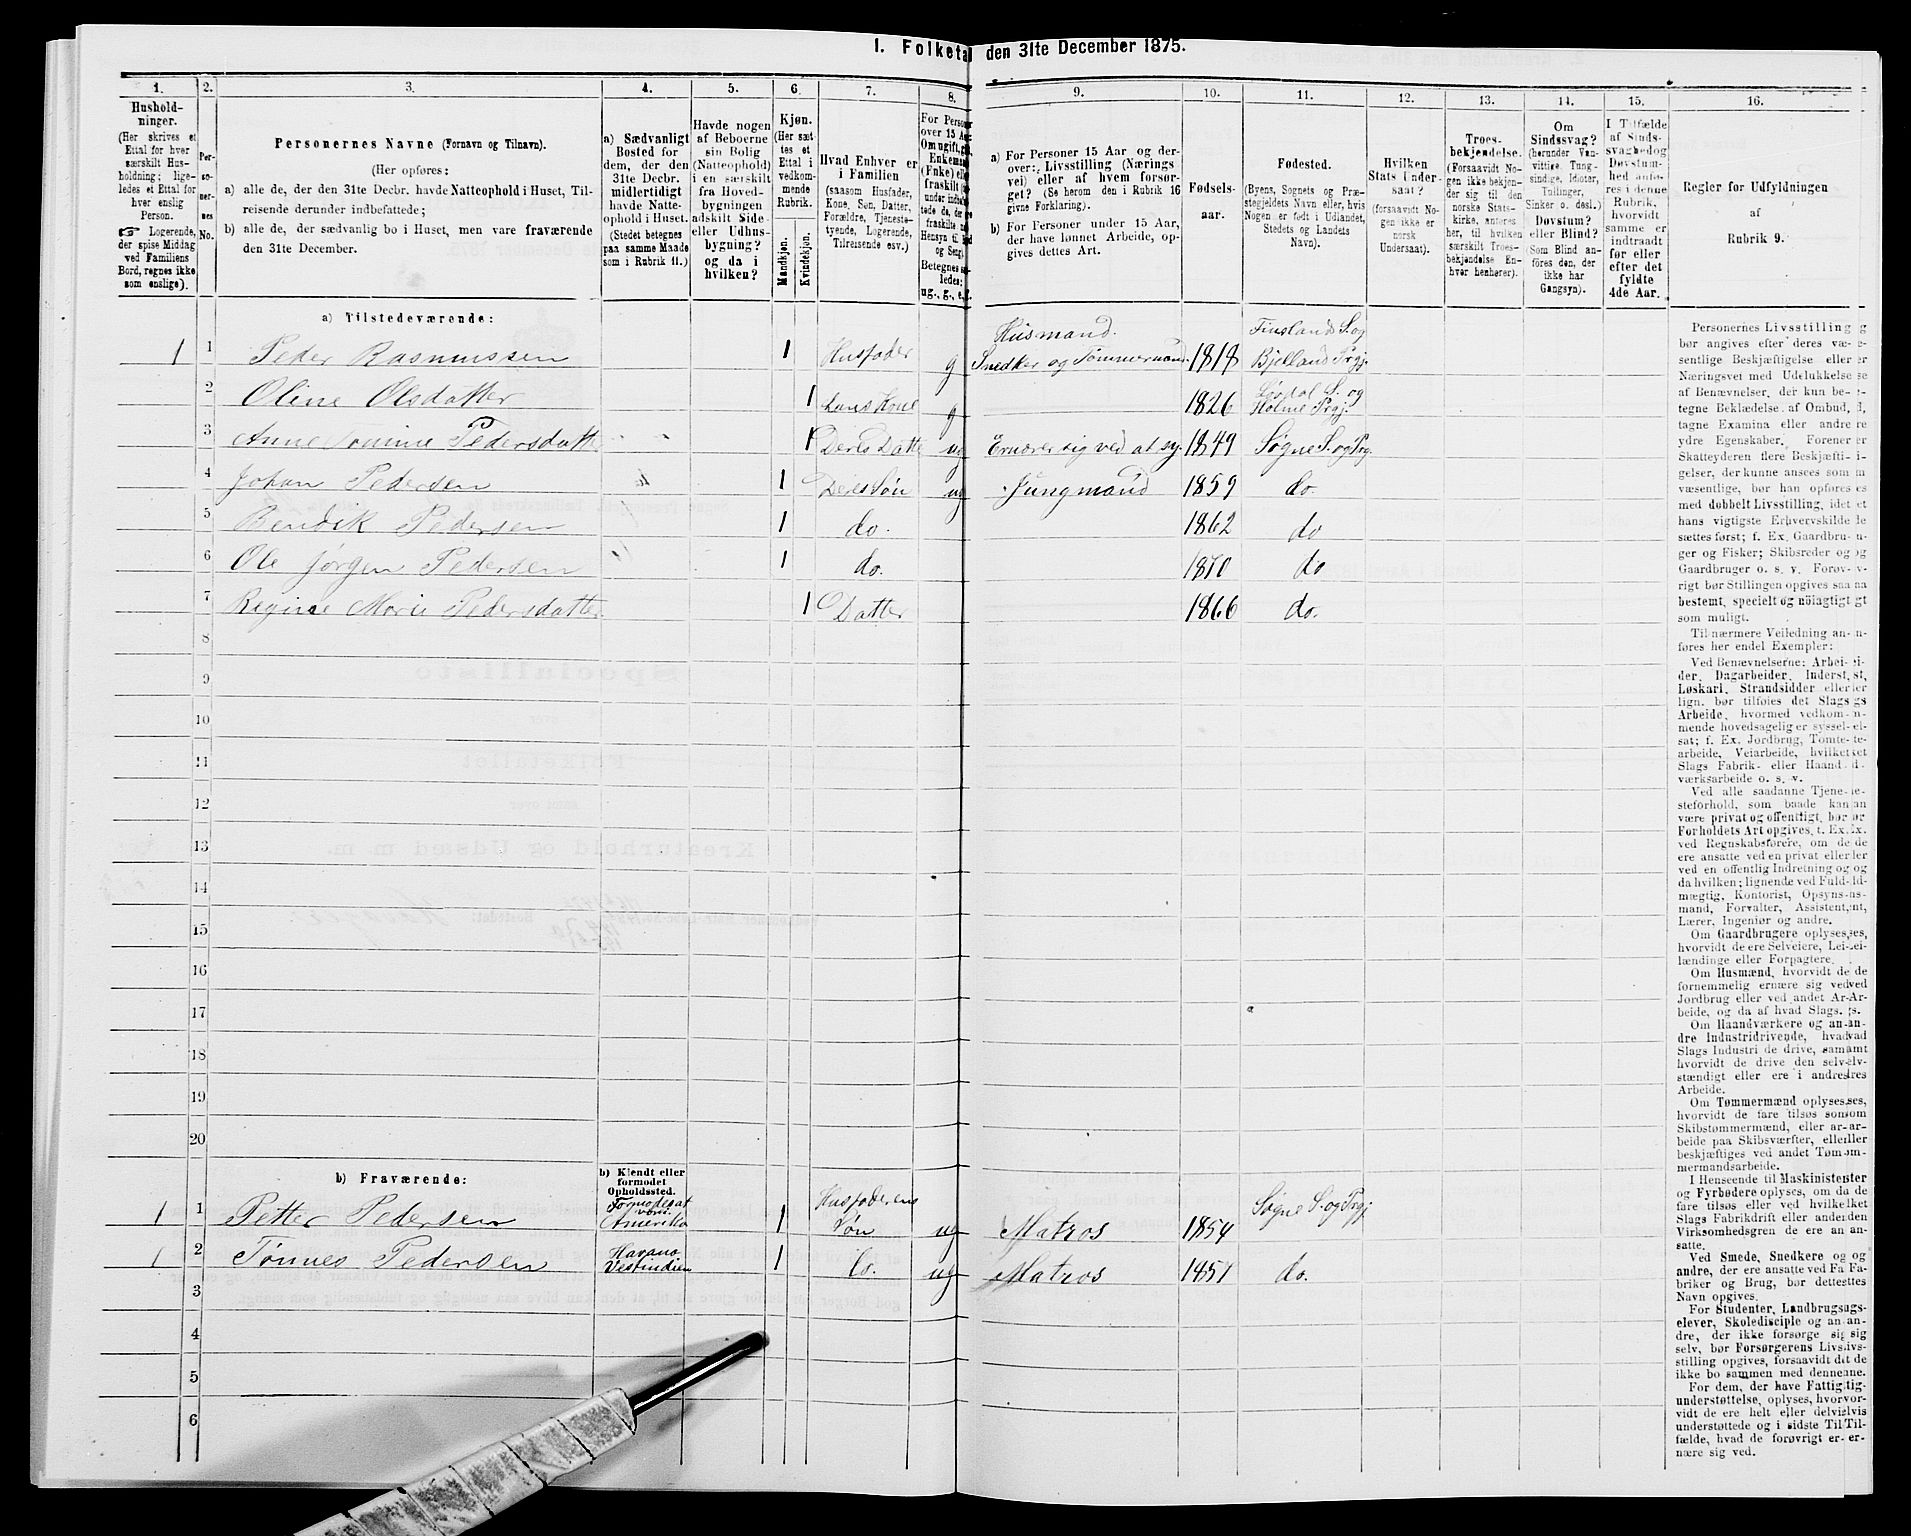 1. Folketal den 31te December 1875.
1. 2. 3. 4. 5. 6. 7. 8. 9. 10. 11. 12. 13. 14. 15. 16.
Hushold-
ninger.
(Her skrives et
Ettal for hver
særskilt Hus-
holdning; lige-
ledes et Ettal for
hver enslig
Person.
☞ Logerende,
der spise Middag
ved Familiens
Bord, regnes ikke
som enslige).
Per-
so-
ner-
nes
No.
Personernes Navne (Fornavn og Tilnavn).
(Her opføres:
a) alle de, der den 31te Decbr. havde Natteophold i Huset, Til-
reisende derunder indbefattede;
b) alle de, der sædvanlig bo i Huset, men vare fraværende
den 31te December.
a) Sædvanligt
Bosted for
dem, der den
31te Decbr.
midlertidigt
havde Natte-
ophold i Huset.
(Stedet betegnes
paa samme Maade
som i Rubrik 11.)
Havde nogen
af Beboerne
sin Bolig
(Natteophold)
i en særskilt
fra Hoved-
bygningen
adskilt Side-
eller Udhus-
bygning?
og da i
hvilken?
Kjøn.
(Her sæt-
tes et
Ettal i
vedkom-
mende
Rubrik.
Mandkjøn.
Kvindekjøn.
Hvad Enhver er
i Familien
(saasom Husfader,
Kone, Søn, Datter,
Forældre, Tjeneste-
tyende, Logerende,
Tilreisende osv.)
For Personer
over 15 Aar
Om ugift, gift,
Enkemand
(Enke) eller
fraskilt
Betegnes saa-
ledes:
ug., g., e., f.
a) For Personer 15 Aar og der-
over: Livsstilling (Nærings
vei) eller af hvem forsør-
get? (Se herom den i Rubrik 16
givne Forklaring).
b) For Personer under 15 Aar,
der have lønnet Arbeide, op-
gives dettes Art.
Fødsels-
aar.
Fødested.
(Byens, Sognets og Præ-
stegjeldets Navn eller, hvis
Nogen er født i Udlandet,
Stedets og Landets
Navn).
Hvilken
Stats Under-
saat?
(forsaavidt No-
gen ikke er
norsk
Undersaat).
Troes-
bekjendelse.
(Forsaavidt No-
gen ikke bekjen-
der sig til den
norske Stats-
kirke, anføres
her, til hvilken
særskilt Troes-
bekjendelse En-
hver henhører).
Om
Sindssvag?
(herunder Van-
vittige, Tung-
sindige, Idioter,
Tullinger,
Sinker o. desl.)
Døvstum?
eller Blind?
(Som Blind an-
føres den, der
ikke har
Gangsyn).
I Tilfælde
af Sinds-
svaghed og
Døvstum-
hed anfø-
res i denne
Rubrik,
hvorvidt
samme er
indtraadt
før eller
efter det
fyldte
4de Aar.
Regler for Udfyldningen
af
Rubrik 9.
a) Tilstedeværende:
1 1 Peder Rasmussen 1 Husfader g Husmand. Snedker og Tømmermand. 1818 Finsland S. og Bjelland Prgj.
2 Oline Olsdatter 1 hans Kone g 1826 Løvdal S. og Holme Prgj.
3 Anne Tomine Pedersdatter 1 Deres Datter ug Ernærer sig ved at sy. 1849 Søgne S. og Prgj.
4 Johan Pedersen 1 Deres Søn ug Jungmand 1859 do.
5 Bendik Pedersen 1 do. 1862 do
6 Ole Jørgen Pedersen 1 do. 1870 do
7 Regine Marie Pedersdatter 1 Datter 1866 do.
8
9
10
11
12
13
14
15
16
17
18
19
20
b) Fraværende:
b) Kjendt eller
formodet
Opholdssted.
1 1 Petter Pedersen Formodes at være Amerika 1 Husfaderens Søn ug Matros 1854 Søgne S. og Prgj
1 2 Tønnes Pedersen Havana Vestindien 1 do. ug Matros 1851 do.
3
4
5
6
Personernes Livsstilling
bør angives efter deres væ-
sentlige Beskjæftigelse eller
Næringsvei med Udelukkelse
af Benævnelser, der kun be-
tegne Beklædelse af Ombud,
tagne Examina eller andre
ydre Egenskaber. Forener
Skatteyderen flere Beskjæfti-
gelser, der kunne ansees som
væsentlige, bør han opføres
med dobbelt Livsstilling, idet
hans vigtigste Erhvervskilde
sættes først; f. Ex. Gaardbru-
ger og Fisker; Skibsreder og
Gaardbruger o. s. v. Forøv-
rigt bør Stillingen opgives saa
bestemt, specielt og nöiagtigt
som muligt.
Til nærmere Veiledning an-
føres her endel Exempler:
Ved Benævnelserne: Arbei-
der, Dagarbeider, Inderst,
Løskarl, Strandsidder eller
lign. bør tilføies det Slags
Arbeide, hvormed vedkom-
mende hovedsagelig er syssel-
sat; f. Ex. Jordbrug, Tomte-
arbeide, Veiarbeide, hvilket
Slags Fabrik- eller Haand-
værksarbeide o. s. v.
Ved alle saadanne Tjene-
steforhold, som baade kan
være privat og offentligt, bør
Forholdets Art opgives, t. Ex.
ved Regnskabsførere, om de
ere ansatte ved en privat eller
ved en offentlig Indretning og
da hvilken; lignende ved Fuld-
mægtig, Kontorist, Opsyns-
mand, Forvalter, Assistent,
Lærer, Ingeniør og andre.
Om Gaardbrugere oplyses,
hvorvidt de ere Selveiere, Lei-
lændinge eller Forpagtere.
Om Husmænd, hvorvidt de
fornemmelig ernære sig ved
Jordbrug eller ved andet Ar-
beide, og da af hvad Slags.
Om Haandværkere og an-
dre Industridrivende, hvad
Slags Industri de drive, samt
hvorvidt de drive den selv-
stændigt eller ere i andres
Arbeide.
Om Tømmermænd oplyses,
hvorvidt de fare tilsøs som
Skibstømmermænd, eller ar-
beide paa Skibsværfter, eller
beskjæftiges ved andet Tøm-
mermandsarbeide.
I Henseende til Maskinister
og Fyrbødere oplyses, om de
fare tilsøs eller ved hvilket
Slags Fabrikdrift eller anden
Virksomhedsgren de ere an-
satte.
Ved Smede, Snedkere og
andre, der ere ansatte ved Fa-
briker og Brug, bør dettes
Navn opgives.
For Studenter, Landbrugs-
elever, Skoledisciple og an-
dre, der ikke forsørge sig
selv, bør Forsørgerens Livs-
stilling opgives, forsaavidt de
ikke bo sammen med denne.
For dem, der have Fattig-
understøttelse, oplyses, hvor-
vidt de ere helt eller delvis
understøttede og i sidste Til-
fælde, hvad de forøvrigt er-
nære sig ved.